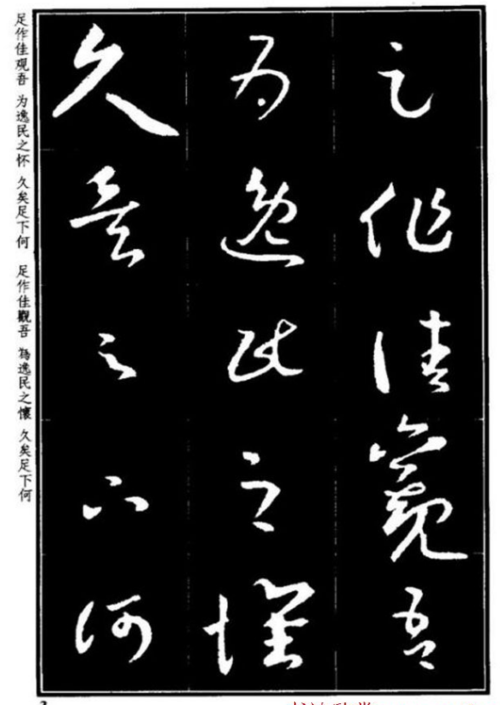 足作佳觀吾
為逸民之懷
久矣足下何
足作佳观吾 为逸民之怀 久矣足下何 足作佳觀吾 為逸民之懷 久矣足下何
3